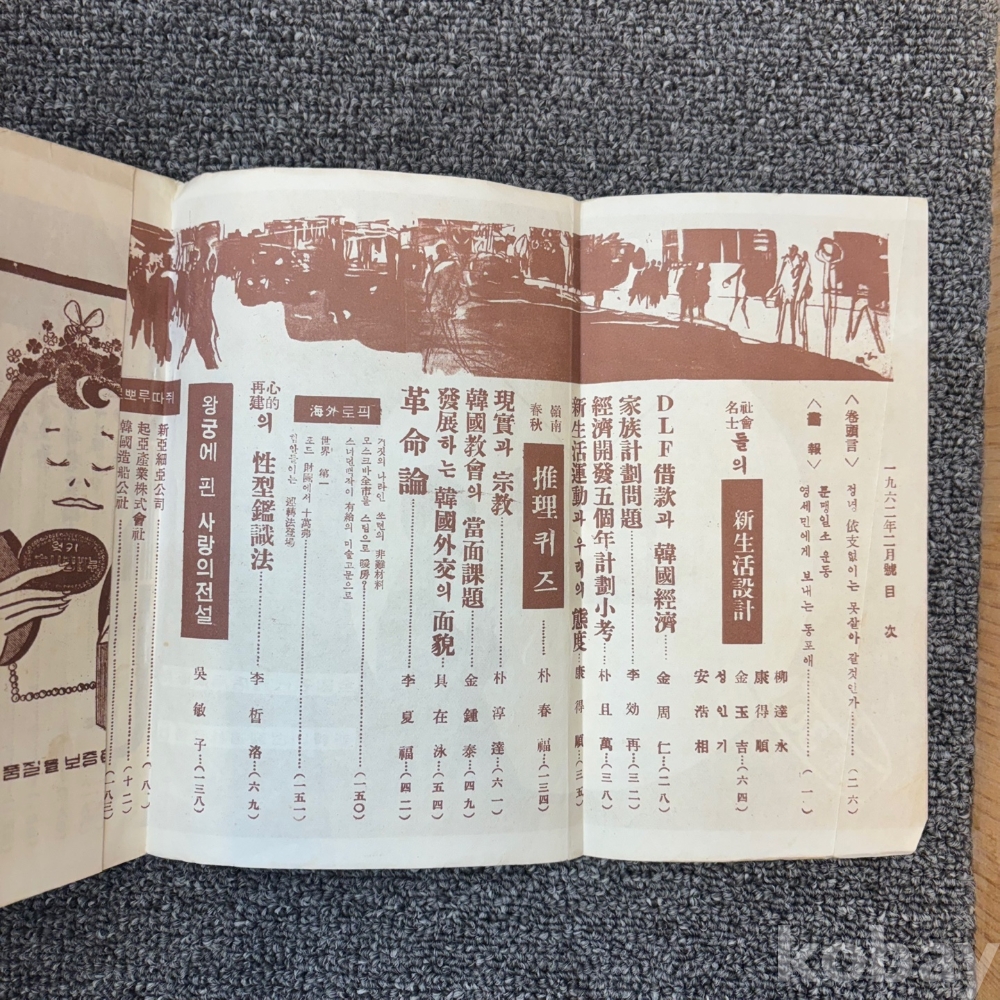 一九六二年二月號 目 次
〈卷頭言〉 정녕 依支없이는 못살아 갈것인가……(二六)
〈畫報〉 문맹일소 운동
영세민에게 보내는 동포애……(一)
社會名士들의 新生活設計
柳達永
康得順
金玉吉…(六四)
정인기
安浩相
DLF借款과 韓國經濟……金周仁…(二八)
家族計劃問題……李効再…(三二)
經濟開發五個年計劃小考……朴且萬…(三八)
新生活運動과 우리의 態度…康得順…(三五)
嶺南春秋 推理퀴즈……朴春福…(一三四)
現實과 宗教……朴淳達…(六一)
韓國教會의 當面課題……金鍾泰…(四九)
發展하는 韓國外交의 面貌……具在泳…(五四)
革命論……李夏福…(四二)
海外토픽
거짓의 나라인 쏘련의 非難材料
모스크바全市를 스팀으로 暖房?
스너먼맥작이 有給의 미술고문으로……(一五○)
世界 第一
포드 財團에서 十萬弗
……(一五一)
心的再建의 性型鑑識法……李晳洛…(六九)
왕궁에 핀 사랑의전설
吳敏子…(一三八)
르뽀루따쥐
新亞細亞公司……(八)
起亞產業株式會社……(十二)
韓國造船公社……(八三)
품질을 보증
kobay